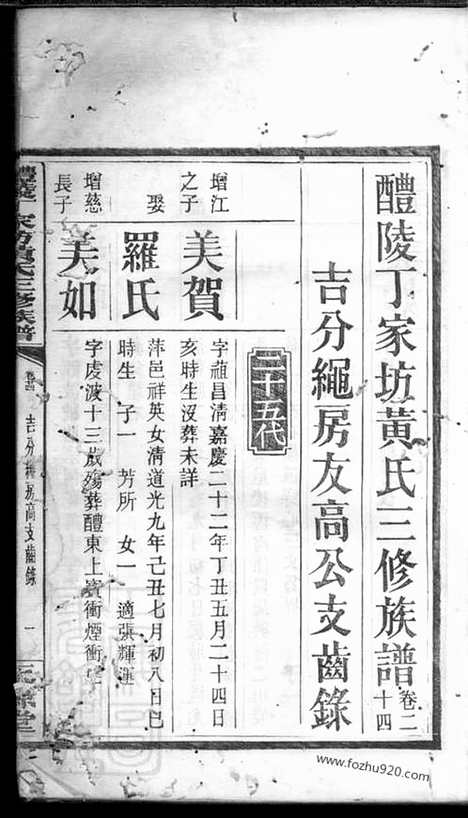 醴陵丁家坊黃氏三修族譜卷二十四
吉分繩房友高公支齒錄
二十五代
增江之子
美賀
字蒩昌清嘉慶二十二年丁丑五月二十四日亥時生沒葬未詳
娶
羅氏
萍邑祥英女清道光九年己丑七月初八日巳時生 子一 芳所 女一 適張輝
增慈長子
美如
字虔波十三歲殤葬醴東上寶衝煙衝
家坊黃氏三修族譜
吉分繩房高支齒錄
一
www.fozhu920.com